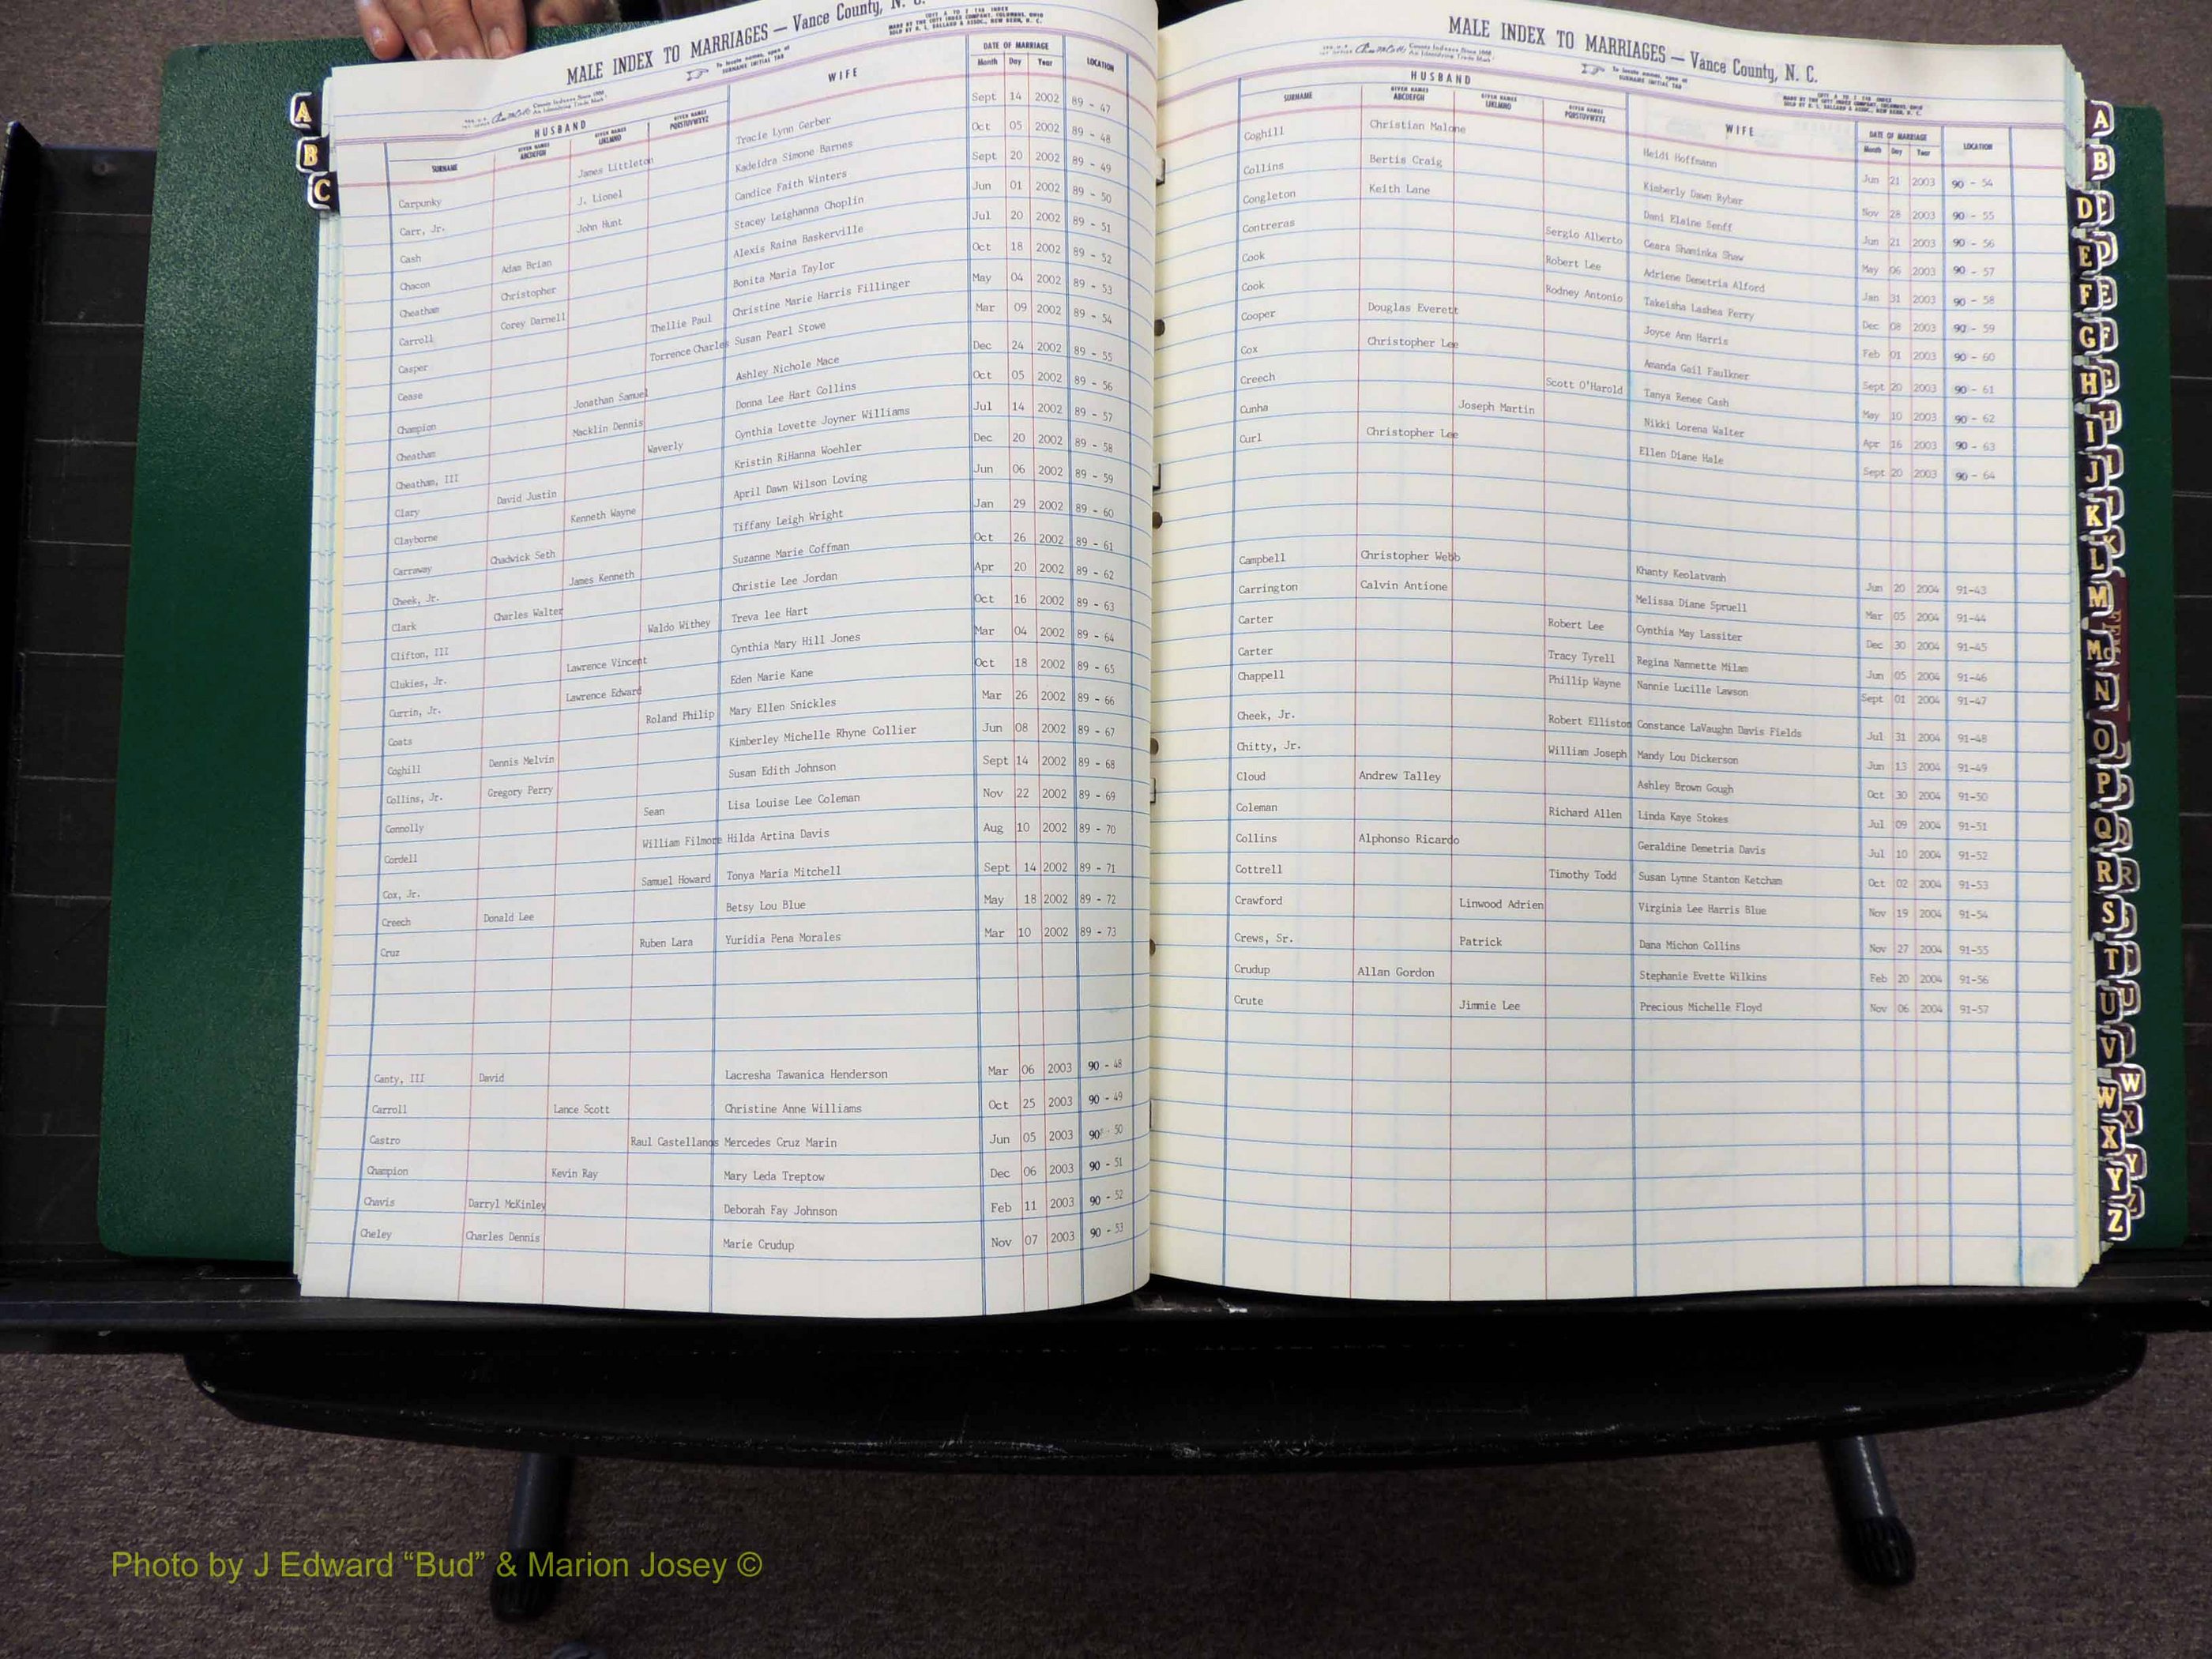 MALE INDEX TO MARRIAGES — Vance County, N. C.
HUSBAND WIFE DATE OF MARRIAGE LOCATION
SURNAME GIVEN NAMES ABCDEFGH GIVEN NAMES IJKLMNO GIVEN NAMES PQRSTUVWXYZ Month Day Year
Carpunky James Littleton Tracie Lynn Gerber Sept 14 2002 89 - 47
Carr, Jr. J. Lionel Kadeidra Simone Barnes Oct 05 2002 89 - 48
Cash John Hunt Candice Faith Winters Sept 20 2002 89 - 49
Chacon Adam Brian Stacey Leighanna Choplin Jun 01 2002 89 - 50
Cheatham Christopher Alexis Raina Baskerville Jul 20 2002 89 - 51
Carroll Corey Darnell Bonita Maria Taylor Oct 18 2002 89 - 52
Casper Thellie Paul Christine Marie Harris Fillinger May 04 2002 89 - 53
Cease Torrence Charles Susan Pearl Stowe Mar 09 2002 89 - 54
Champion Jonathan Samuel Ashley Nichole Mace Dec 24 2002 89 - 55
Cheatham Macklin Dennis Donna Lee Hart Collins Oct 05 2002 89 - 56
Cheatham, III Waverly Cynthia Lovette Joyner Williams Jul 14 2002 89 - 57
Clary David Justin Kristin RiHanna Woehler Dec 20 2002 89 - 58
Clayborne Kenneth Wayne April Dawn Wilson Loving Jun 06 2002 89 - 59
Carraway Chadwick Seth Tiffany Leigh Wright Jan 29 2002 89 - 60
Cheek, Jr. James Kenneth Suzanne Marie Coffman Oct 26 2002 89 - 61
Clark Charles Walter Christie Lee Jordan Apr 20 2002 89 - 62
Clifton, III Waldo Withey Treva lee Hart Oct 16 2002 89 - 63
Clukies, Jr. Lawrence Vincent Cynthia Mary Hill Jones Mar 04 2002 89 - 64
Currin, Jr. Lawrence Edward Eden Marie Kane Oct 18 2002 89 - 65
Coats Roland Philip Mary Ellen Snickles Mar 26 2002 89 - 66
Coghill Dennis Melvin Kimberley Michelle Rhyne Collier Jun 08 2002 89 - 67
Collins, Jr. Gregory Perry Susan Edith Johnson Sept 14 2002 89 - 68
Connolly Sean Lisa Louise Lee Coleman Nov 22 2002 89 - 69
Cordell William Filmore Hilda Artina Davis Aug 10 2002 89 - 70
Cox, Jr. Samuel Howard Tonya Maria Mitchell Sept 14 2002 89 - 71
Creech Donald Lee Betsy Lou Blue May 18 2002 89 - 72
Cruz Ruben Lara Yuridia Pena Morales Mar 10 2002 89 - 73
Canty, III David Lacresha Tawanica Henderson Mar 06 2003 90 - 48
Carroll Lance Scott Christine Anne Williams Oct 25 2003 90 - 49
Castro Raul Castellanos Mercedes Cruz Marin Jun 05 2003 90 - 50
Champion Kevin Ray Mary Leda Treptow Dec 06 2003 90 - 51
Chavis Darryl McKinley Deborah Fay Johnson Feb 11 2003 90 - 52
Cheley Charles Dennis Marie Crudup Nov 07 2003 90 - 53
MALE INDEX TO MARRIAGES — Vance County, N. C.
HUSBAND WIFE DATE OF MARRIAGE LOCATION
SURNAME GIVEN NAMES ABCDEFGH GIVEN NAMES IJKLMNO GIVEN NAMES PQRSTUVWXYZ Month Day Year
Coghill Christian Malone Heidi Hoffmann Jun 21 2003 90 - 54
Collins Bertis Craig Kimberly Dawn Ryber Nov 28 2003 90 - 55
Congleton Keith Lane Dani Elaine Senff Jun 21 2003 90 - 56
Contreras Sergio Alberto Ceara Shaminka Shaw May 06 2003 90 - 57
Cook Robert Lee Adriene Demetria Alford Jan 31 2003 90 - 58
Cook Rodney Antonio Takeisha Lashea Perry Dec 08 2003 90 - 59
Cooper Douglas Everett Joyce Ann Harris Feb 01 2003 90 - 60
Cox Christopher Lee Amanda Gail Faulkner Sept 20 2003 90 - 61
Creech Scott O'Harold Tanya Renee Cash May 10 2003 90 - 62
Cunha Joseph Martin Nikki Lorena Walter Apr 16 2003 90 - 63
Curl Christopher Lee Ellen Diane Hale Sept 20 2003 90 - 64
Campbell Christopher Webb Khanty Keolatvanh Jun 20 2004 91-43
Carrington Calvin Antione Melissa Diane Spruell Mar 05 2004 91-44
Carter Robert Lee Cynthia May Lassiter Dec 30 2004 91-45
Carter Tracy Tyrell Regina Nannette Milam Jun 05 2004 91-46
Chappell Phillip Wayne Nannie Lucille Lawson Sept 01 2004 91-47
Cheek, Jr. Robert Elliston Constance LaVaughn Davis Fields Jul 31 2004 91-48
Chitty, Jr. William Joseph Mandy Lou Dickerson Jun 13 2004 91-49
Cloud Andrew Talley Ashley Brown Gough Oct 30 2004 91-50
Coleman Richard Allen Linda Kaye Stokes Jul 09 2004 91-51
Collins Alphonso Ricardo Geraldine Demetria Davis Jul 10 2004 91-52
Cottrell Timothy Todd Susan Lynne Stanton Ketcham Oct 02 2004 91-53
Crawford Linwood Adrien Virginia Lee Harris Blue Nov 19 2004 91-54
Crews, Sr. Patrick Dana Michon Collins Nov 27 2004 91-55
Crudup Allan Gordon Stephanie Evette Wilkins Feb 20 2004 91-56
Crute Jimmie Lee Precious Michelle Floyd Nov 06 2004 91-57
A
B
C
A
B
D
E
F
G
H
I
J
K
L
M
Mc
N
O
P
Q
R
S
T
U
V
W
X
Y
Z
Photo by J Edward “Bud” & Marion Josey ©